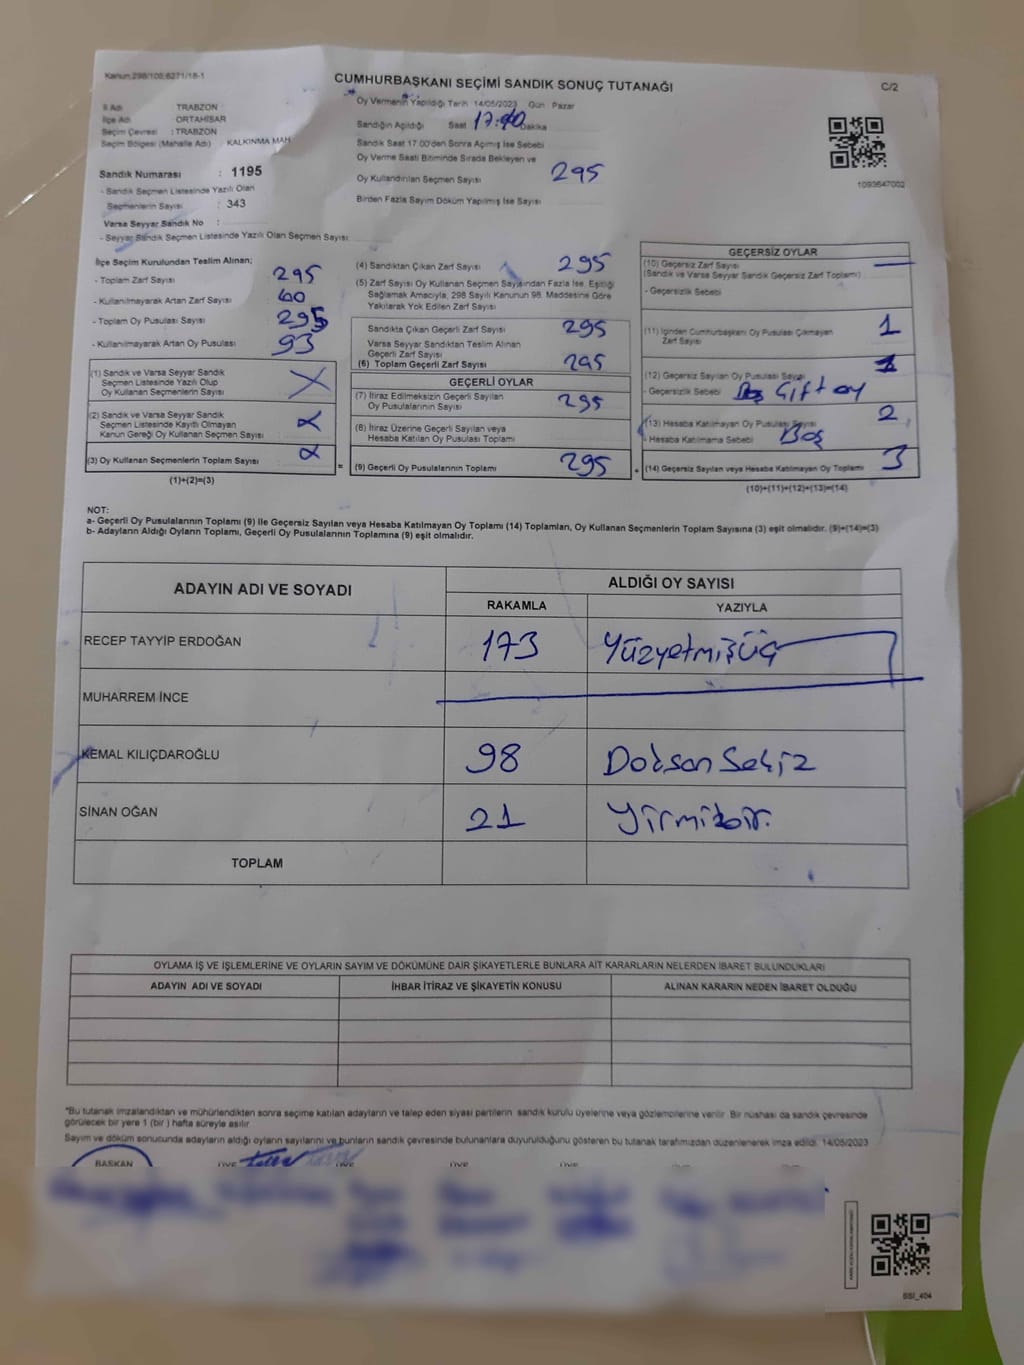 Kanun:298/105;6271/18-1
CUMHURBAŞKANI SEÇİMİ SANDIK SONUÇ TUTANAĞI
C/2
İl Adı : TRABZON
İlçe Adı : ORTAHİSAR
Seçim Çevresi : TRABZON
Seçim Bölgesi (Mahalle Adı) : KALKINMA MAH.
Sandık Numarası : 1195
- Sandık Seçmen Listesinde Yazılı Olan
Seçmenlerin Sayısı : 343
Varsa Seyyar Sandık No :
- Seyyar Sandık Seçmen Listesinde Yazılı Olan Seçmen Sayısı:
Oy Vermenin Yapıldığı Tarih 14/05/2023 Gün Pazar
Sandığın Açıldığı Saat 17:40 Dakika
Sandık Saat 17.00'den Sonra Açımış İse Sebebi
Oy Verme Saati Bitiminde Sırada Bekleyen ve
Oy Kullandırılan Seçmen Sayısı 295
Birden Fazla Sayım Döküm Yapılmış İse Sayısı
1093647002
İlçe Seçim Kurulundan Teslim Alınan;
- Toplam Zarf Sayısı 295
- Kullanılmayarak Artan Zarf Sayısı 60
- Toplam Oy Pusulası Sayısı 295
- Kullanılmayarak Artan Oy Pusulası 93
(1) Sandık ve Varsa Seyyar Sandık
Seçmen Listesinde Yazılı Olup
Oy Kullanan Seçmenlerin Sayısı X
(2) Sandık ve Varsa Seyyar Sandık
Seçmen Listesinde Kayıtlı Olmayan
Kanun Gereği Oy Kullanan Seçmen Sayısı
(3) Oy Kullanan Seçmenlerin Toplam Sayısı
(1)+(2)=(3)
=
(4) Sandıktan Çıkan Zarf Sayısı 295
(5) Zarf Sayısı Oy Kullanan Seçmen Sayısından Fazla İse, Eşitliği
Sağlamak Amacıyla, 298 Sayılı Kanunun 98. Maddesine Göre
Yakılarak Yok Edilen Zarf Sayısı
Sandıkta Çıkan Geçerli Zarf Sayısı 295
Varsa Seyyar Sandıktan Teslim Alınan
Geçerli Zarf Sayısı
(6) Toplam Geçerli Zarf Sayısı 295
GEÇERLİ OYLAR
(7) İtiraz Edilmeksizin Geçerli Sayılan
Oy Pusulalarının Sayısı 295
(8) İtiraz Üzerine Geçerli Sayılan veya
Hesaba Katılan Oy Pusulası Toplamı
(9) Geçerli Oy Pusulalarının Toplamı 295
+
GEÇERSİZ OYLAR
(10) Geçersiz Zarf Sayısı
(Sandık ve Varsa Seyyar Sandık Geçersiz Zarf Toplamı)
- Geçersizlik Sebebi
(11) İçinden Cumhurbaşkanı Oy Pusulası Çıkmayan
Zarf Sayısı 1
(12) Geçersiz Sayılan Oy Pusulası Sayısı
- Geçersizlik Sebebi Çift oy
(13) Hesaba Katılmayan Oy Pusulası Sayısı 2
- Hesaba Katılmama Sebebi Boş
(14) Geçersiz Sayılan veya Hesaba Katılmayan Oy Toplamı 3
(10)+(11)+(12)+(13)=(14)
NOT:
a- Geçerli Oy Pusulalarının Toplamı (9) ile Geçersiz Sayılan veya Hesaba Katılmayan Oy Toplamı (14) Toplamları, Oy Kullanan Seçmenlerin Toplam Sayısına (3) eşit olmalıdır. (9)+(14)=(3)
b- Adayların Aldığı Oyların Toplamı, Geçerli Oy Pusulalarının Toplamına (9) eşit olmalıdır.
ADAYIN ADI VE SOYADI
ALDIĞI OY SAYISI
RAKAMLA YAZIYLA
RECEP TAYYİP ERDOĞAN 173 Yüzyetmişüç
MUHARREM İNCE
KEMAL KILIÇDAROĞLU 98 Doksan Sekiz
SİNAN OĞAN 21 Yirmibir.
TOPLAM
OYLAMA İŞ VE İŞLEMLERİNE VE OYLARIN SAYIM VE DÖKÜMÜNE DAİR ŞİKAYETLERLE BUNLARA AİT KARARLARIN NELERDEN İBARET BULUNDUKLARI
ADAYIN ADI VE SOYADI İHBAR İTİRAZ VE ŞİKAYETİN KONUSU ALINAN KARARIN NEDEN İBARET OLDUĞU
*Bu tutanak imzalandıktan ve mühürlendikten sonra seçime katılan adayların ve talep eden siyasi partilerin sandık kurulu üyelerine veya gözlemcilerine verilir. Bir nüshası da sandık çevresinde
görülecek bir yere 1 (bir) hafta süreyle asılır.
Sayım ve döküm sonucunda adayların aldığı oyların sayılarını ve bunların sandık çevresinde bulunanlara duyurulduğunu gösteren bu tutanak tarafımızdan düzenlenerek imza edildi. 14/05/2023
BAŞKAN ÜYE ÜYE ÜYE ÜYE
SSI_404